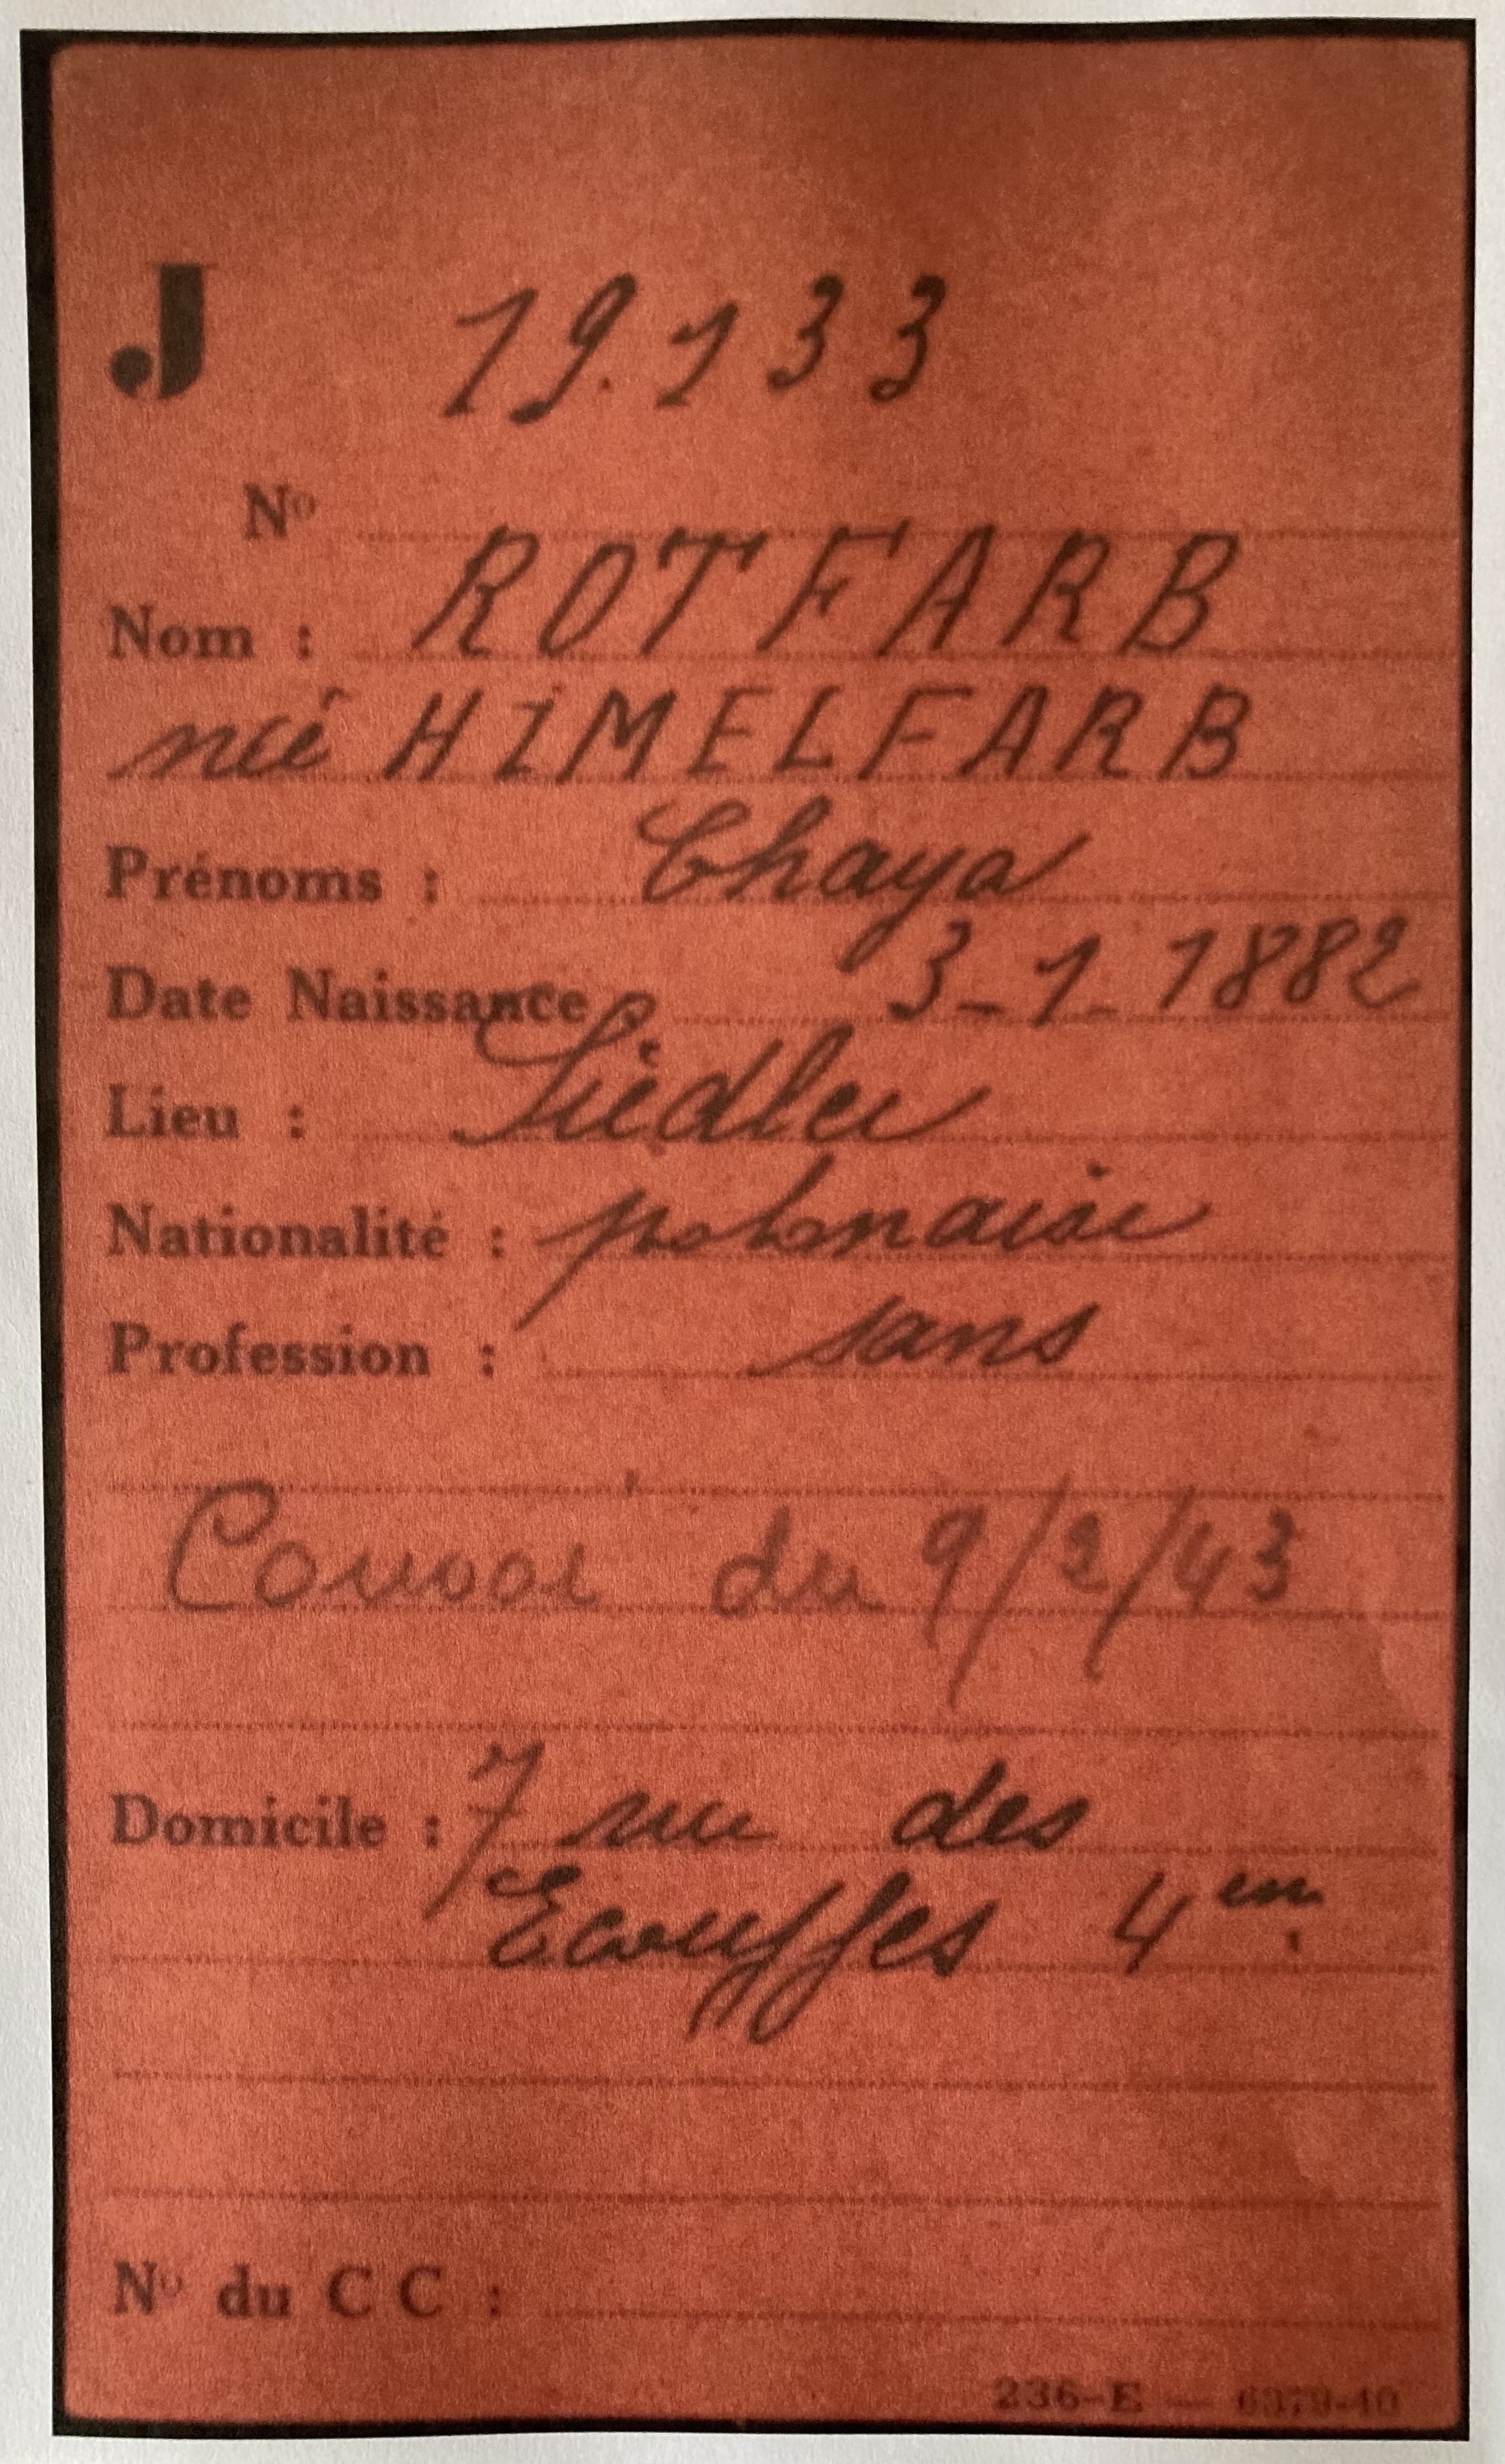 J 19.133
No
Nom : ROTFARB
née HIMELFARB
Prénoms : Chaya
Date Naissance 3-1-1882
Lieu : Siedlec
Nationalité : polonaise
Profession : sans
Convoi du 9/2/43
Domicile : 7 rue des
Ecouffes 4em
No du C C :
236-E — 6379-40